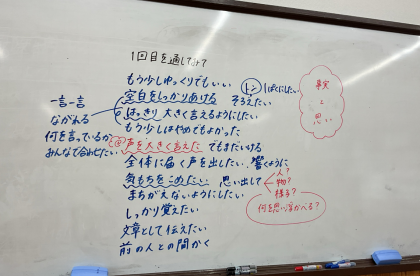 1回目を通してみて
もう少しゆっくりでもいい
トン
しばくにしたい
空白をしっかりあける そろえたい
はっきり 大きく言えるようにしたい
もう少しはやめでもよかった
声を大きく言えた でもまだいける
全体に届く声を出したい 響くように
気もちをこめたい 思い出して
まちがえないようにしたい
しっかり覚えたい
文章として伝えたい
前の人との間かく
一言一言
ながれる
何を言っているか
みんなで合わせたい
事実
と
思い
人?
物?
様子?
何を思い浮かべる?